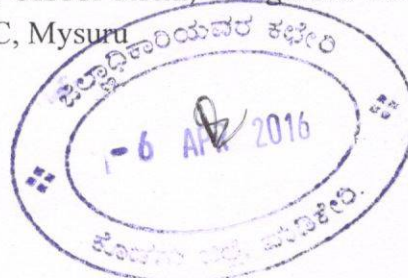 C, Mysuru
ಜಿಲ್ಲಾಧಿಕಾರಿಯವರ ಕಛೇರಿ
-6 APR 2016
ಕೊಡಗು ಜಿಲ್ಲೆ, ಮಡಿಕೇರಿ.